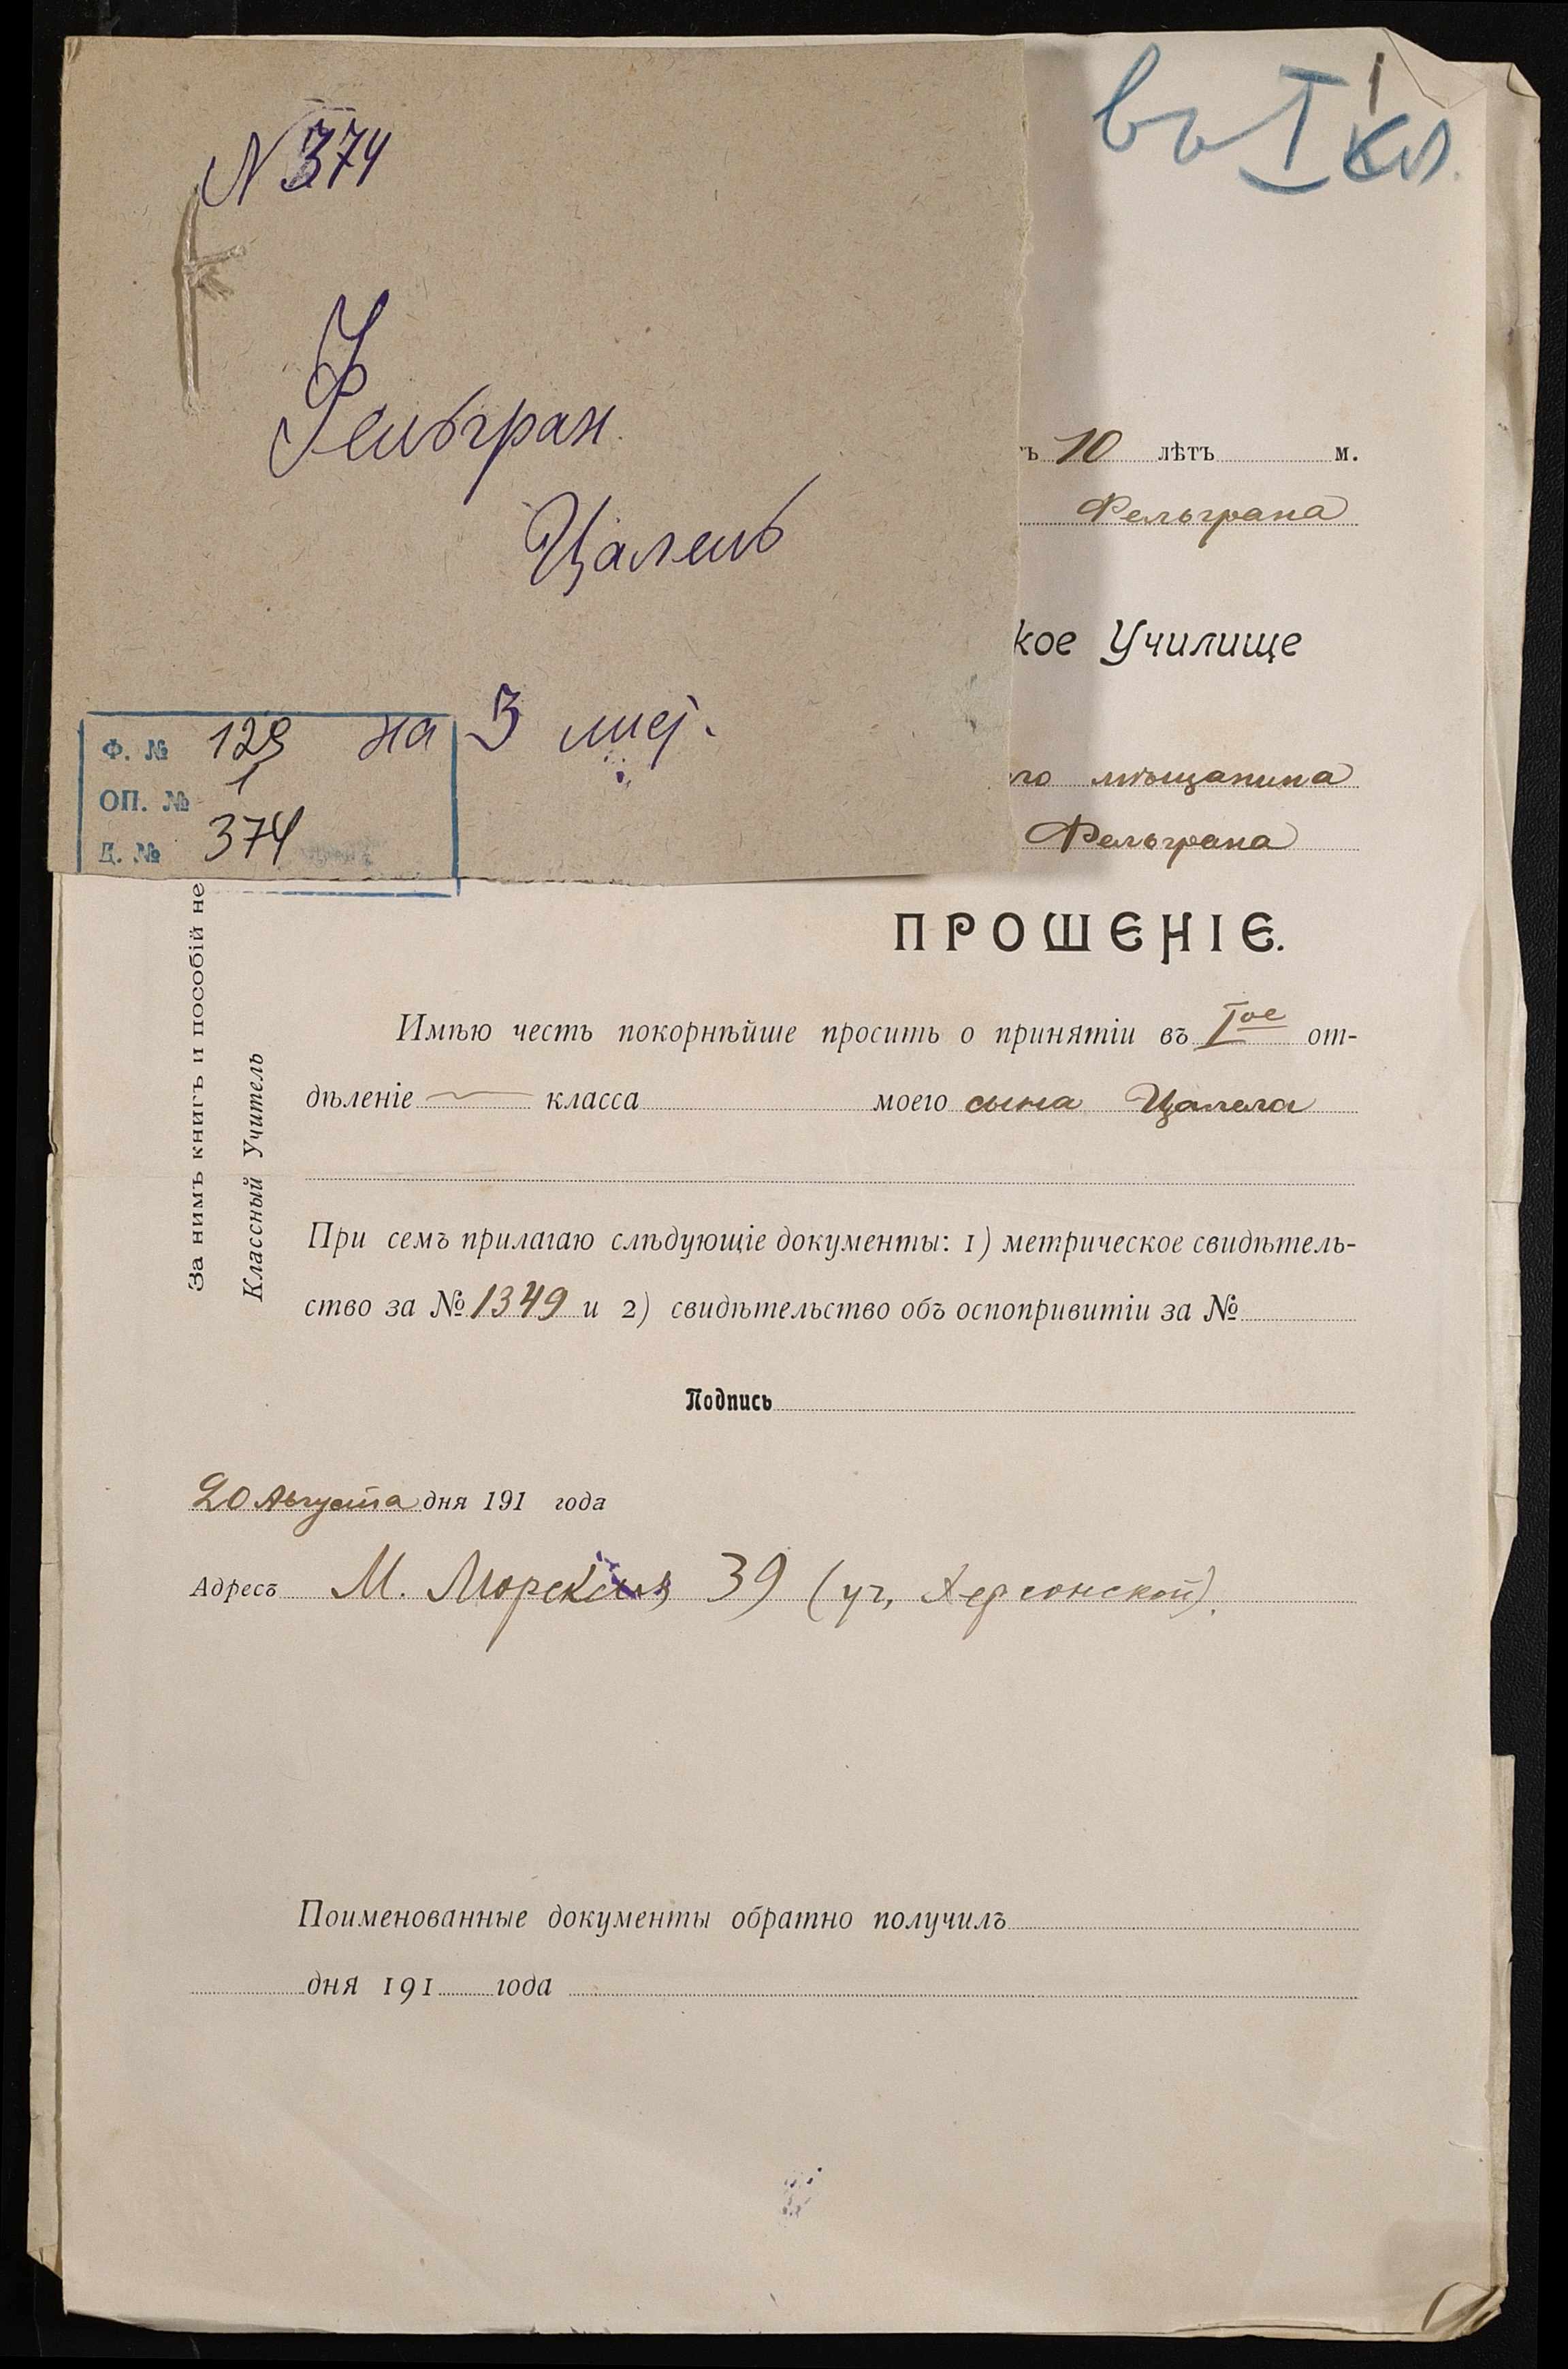 N 374
Фельгран
Цалель
на 3 лис.
Ф. № 129
ОП. № 1
Д. № 374
въ I кл.
1
ъ 10 лѣтъ м.
Фельграна
кое Училище
го мѣщанина
Фельграна
ПРОШЕНІЕ.
Имѣю честь покорнѣйше просить о принятіи въ Iое от-
дѣленіе класса моего сына Цалела
При семъ прилагаю слѣдующіе документы: 1) метрическое свидѣтель-
ство за № 1349 и 2) свидѣтельство объ оспопривитіи за №
Подпись
20 Августа дня 191 года
Адресъ М. Морская 39 (уг. Херсонской).
Поименованные документы обратно получилъ
дня 191 года
За нимъ книгъ и пособій не
Классный Учитель